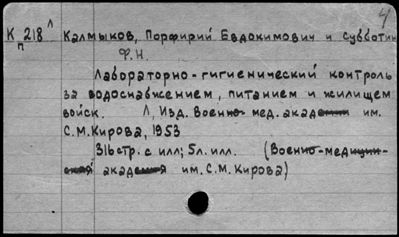 4
К 218 Л Калмыков, Порфирий Евдокимович и Субботин
П Ф.Н.
Лабораторно-гигиенический контроль
за водоснабжением, питанием и жилищем
войск. Л, Изд. Военно- мед. академии им.
С.М.Кирова, 1953
316стр. с илл; 5л. илл. (Военно-медицин-
ская академия им. С.М. Кирова)